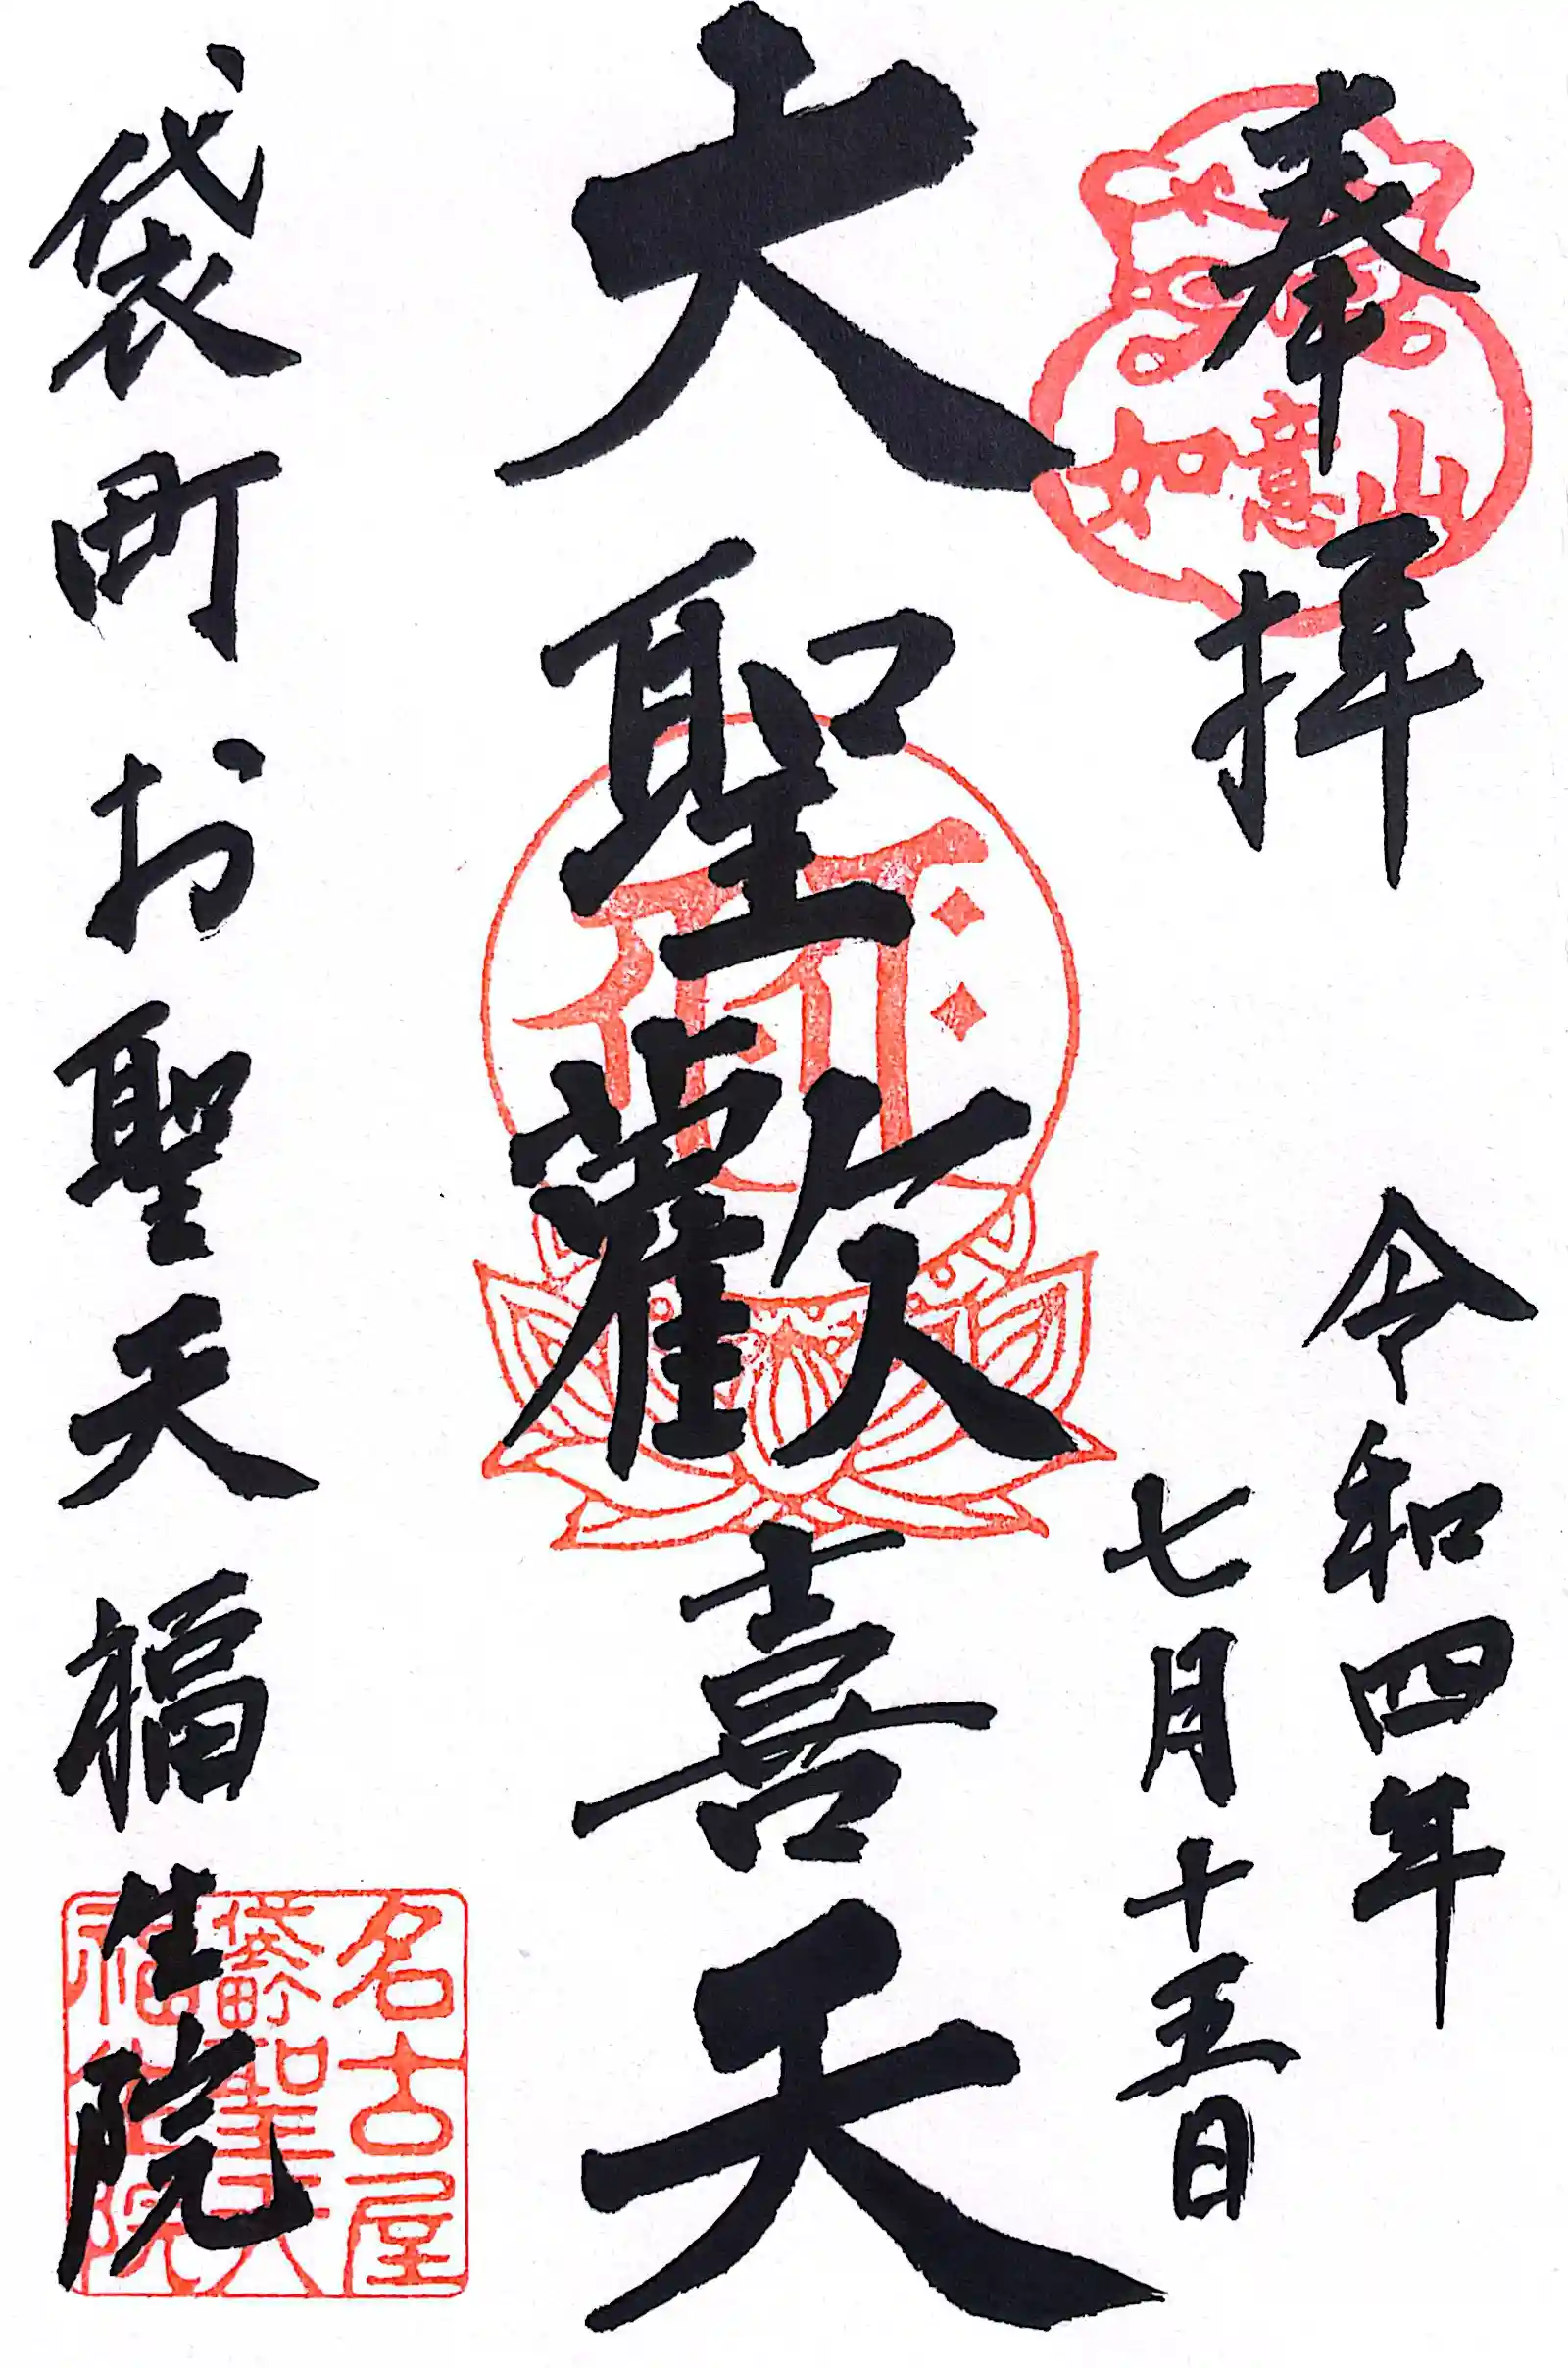 奉拝
如意山
令和四年
七月十五日
大聖歡喜天
袋町お聖天福生院
名古屋
袋町聖天
福生院